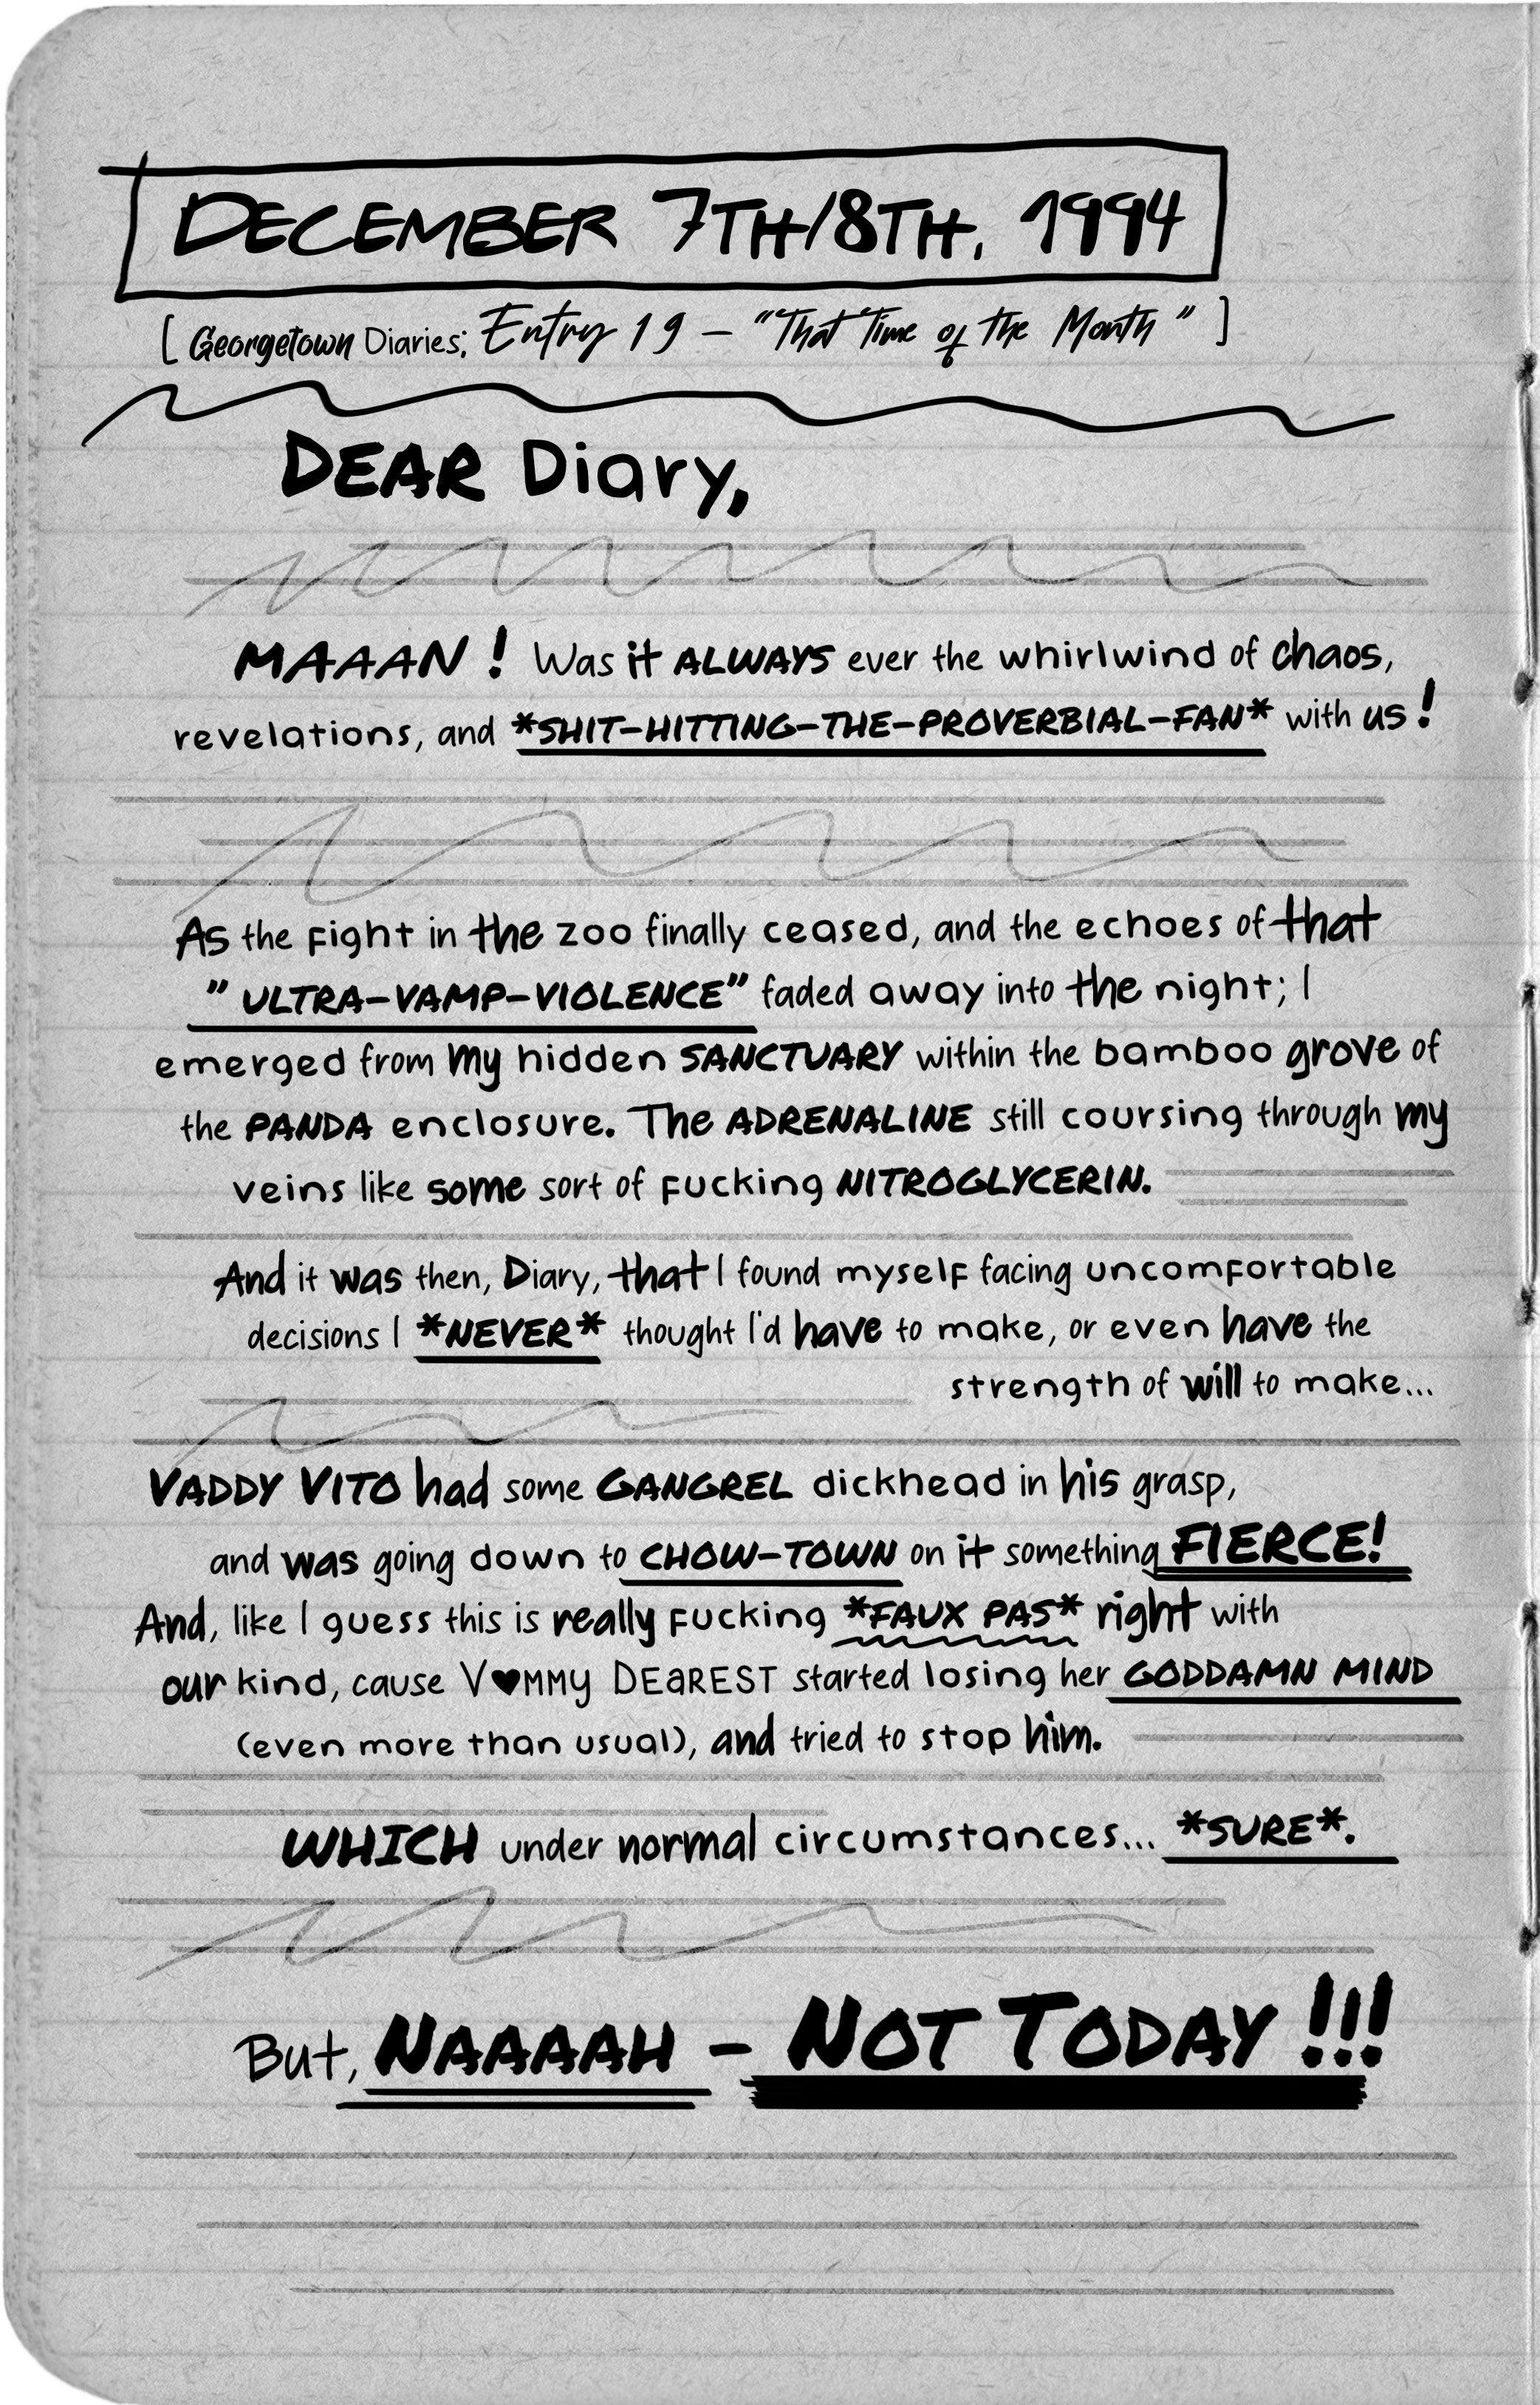 DECEMBER 7TH/8TH, 1994
[ Georgetown Diaries: Entry 19 – "That Time of The Month" ]
DEAR Diary,
MAAAN! Was it ALWAYS ever the whirlwind of chaos,
revelations, and *SHIT-HITTING-THE-PROVERBIAL-FAN* with us!
As the fight in the zoo finally ceased, and the echoes of that
"ULTRA-VAMP-VIOLENCE" faded away into the night; I
emerged from my hidden SANCTUARY within the bamboo grove of
the PANDA enclosure. The ADRENALINE still coursing through my
veins like some sort of fucking NITROGLYCERIN.
And it was then, Diary, that I found myself facing uncomfortable
decisions I *NEVER* thought I'd have to make, or even have the
strength of will to make...
VADDY VITO had some GANGREL dickhead in his grasp,
and was going down to CHOW-TOWN on it something FIERCE!
And, like I guess this is really fucking *FAUX PAS* right with
our kind, cause V♥MMY DEaREST started losing her GODDAMN MIND
(even more than usual), and tried to stop him.
WHICH under normal circumstances... *SURE*.
But, NAAAAH – NOT TODAY!!!